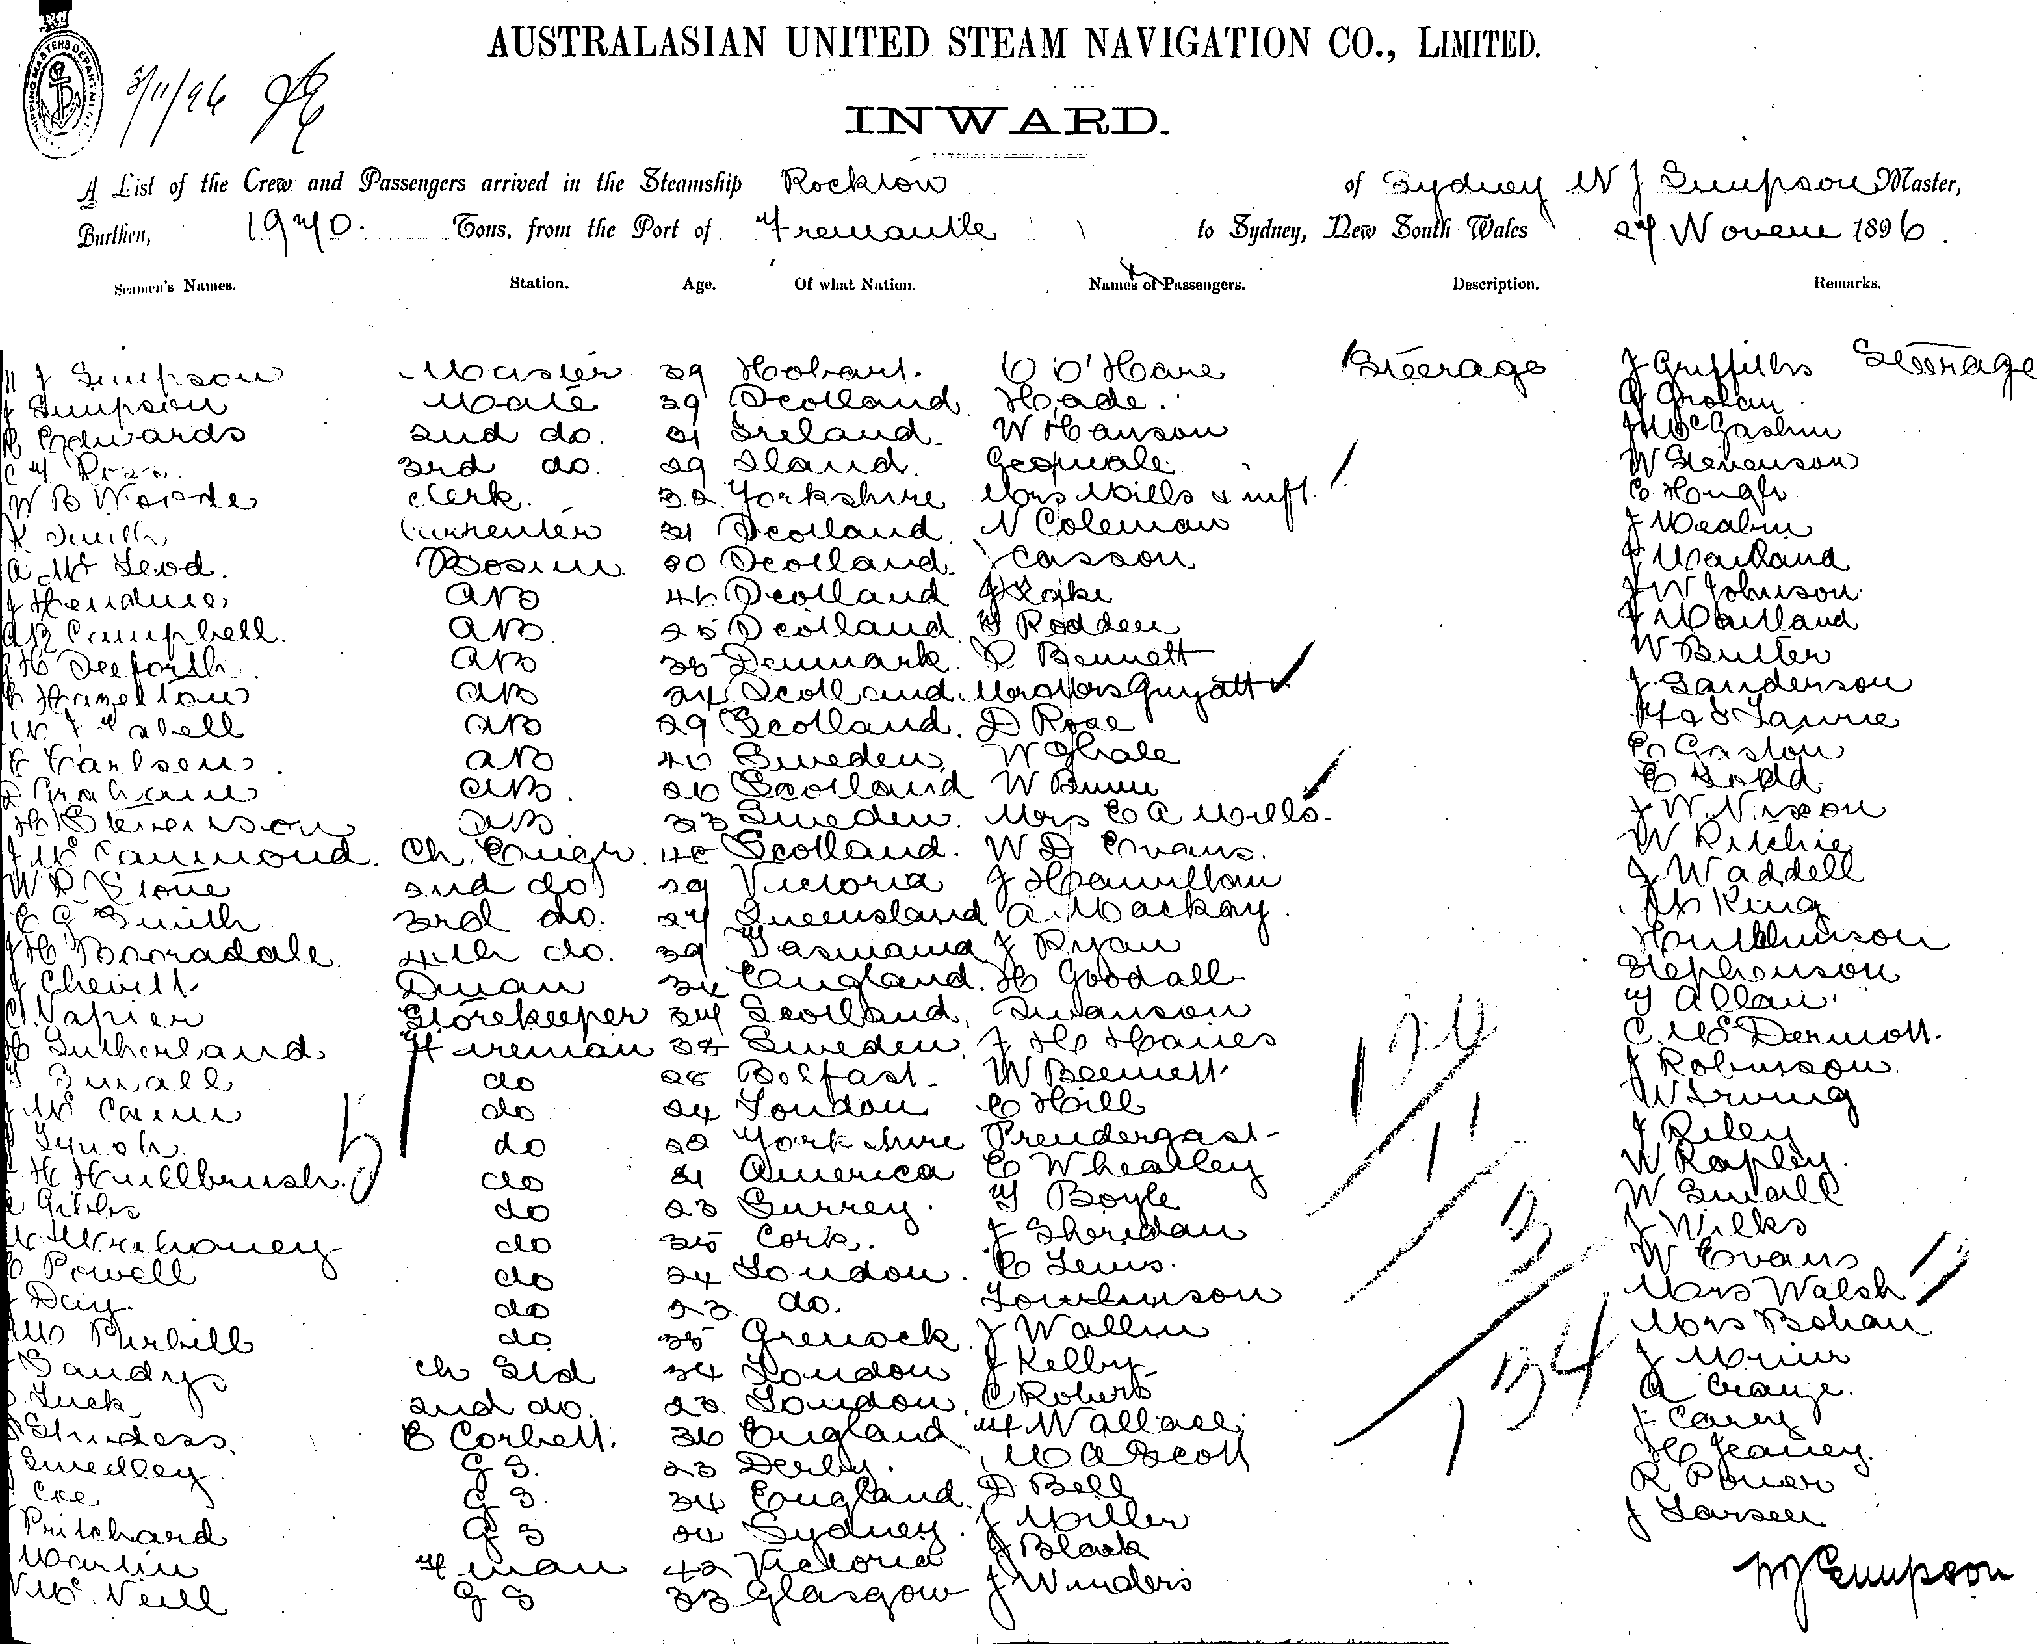 AUSTRALASIAN UNITED STEAM NAVIGATION CO., LIMITED.
3/11/96
INWARD.
A List of the Crew and Passengers arrived in the Steamship Rockton of Sydney W J Simpson Master,
Burthen, 1970. Tons, from the Port of Fremantle to Sydney, New South Wales 27 Novem 1896.
Seamen's Names. Station. Age. Of what Nation. Names of Passengers. Description. Remarks.
W J Simpson Master 39 Hobart. C O'Hare Steerage J Griffiths Steerage
J Simpson Mate 39 Scotland Hade.
Edwards 2nd do. 31 Ireland. W Hanson J McGashin
3rd do. 29 Island. Gespuale W Stevenson
W B Waede Clerk. 32 Yorkshire Mrs Mills & inft. C Hough
R Smith Carpenter 31 Scotland. N Coleman J Mealin
A McLeod. Bosun 30 Scotland. Casson J Marland
J Hendrie AB 46 Scotland J W Johnson
Campbell. AB 25 Scotland. T Rodden J Maitland
H Seeforth AB 35 Denmark. R Bennett W Butler
Hamelton AB 24 Scotland. Mr & Mrs Guyatt J Sanderson
AB 29 Scotland. D Rose Laurie
C Carlsen AB 40 Sweden W Ghale C Gaston
Graham AB. 26 Scotland W Binnie C Dodd
H Stevenson AB 33 Sweden. Mrs C A Mills. J W Nixon
J McCammond. Ch. Engr. 40 Scotland. W D Evans. W Ritchie
W R Stone 2nd do 29 Victoria J Hamilton J Waddell
C G Smith 3rd do. 27 Queensland A Mackay. H King
J H Borradale 4th do. 39 Tasmania J Ryan Hutchinson
J Chevitt Dman 34 England. H Goodall Stephenson
C Napier Storekeeper 37 Scotland. Swanson T Allan
H Sutherland Fireman 38 Sweden. J H Hanes C McDermott.
Small do 28 Belfast. W Bennett J Robinson
J McCann do 24 London C Hill W Irving
Lynch do 30 Yorkshire Prendergast J Riley
H Hullbrush. do 31 America C Wheatley W Rapley.
Gibbs do 23 Surrey. T Boyle W Small
Mahoney do 35 Cork. J Sheridan J Wilks
C Powell do 24 London. C Lewis. W Evans
J Day do 23 do. Tomlinson Mrs Walsh
Purhill do 35 Grenock J Wallin Mrs Bohan
Sandys Ch Std 34 London J Kelby
Luck 2nd do. 23 London. C Roberts A Crange.
Studess. C Corbett. 36 England T Wallace J Carey
Smedley G S. 23 Derby. M A Scott H Jeaney.
Coe G S. 34 England. D Bell R Power
Pritchard G S 24 Sydney. J Miller J Larsen
Martin F man 42 Victoria J Black
McNeill G S 33 Glasgow J Winders
124
11
3
134
5
W J Simpson